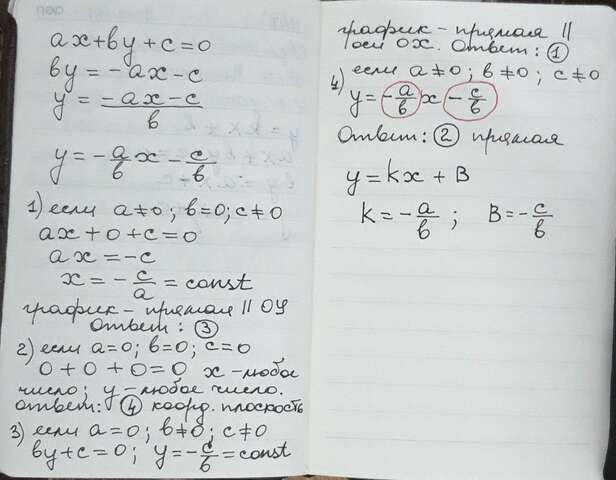 ax+by+c=0
by=-ax-c
y=\frac{-ax-c}{b}
y=-\frac{a}{b}x-\frac{c}{b}
1) если a≠0; b=0; c≠0
ax+0+c=0
ax=-c
x=-\frac{c}{a}=const
график-прямая || OY
Ответ: ③
2) если a=0; b=0; c=0
0+0+0=0 x-любое
число; y-любое число.
Ответ: ④ коорд. плоскость
3) если a=0; b≠0; c≠0
by+c=0; y=-\frac{c}{b}=const
график-прямая ||
оси OX. Ответ: ①
4) если a≠0; b≠0; c≠0
y=-\frac{a}{b}x-\frac{c}{b}
Ответ: ② прямая
y=kx+B
k=-\frac{a}{b}; B=-\frac{c}{b}